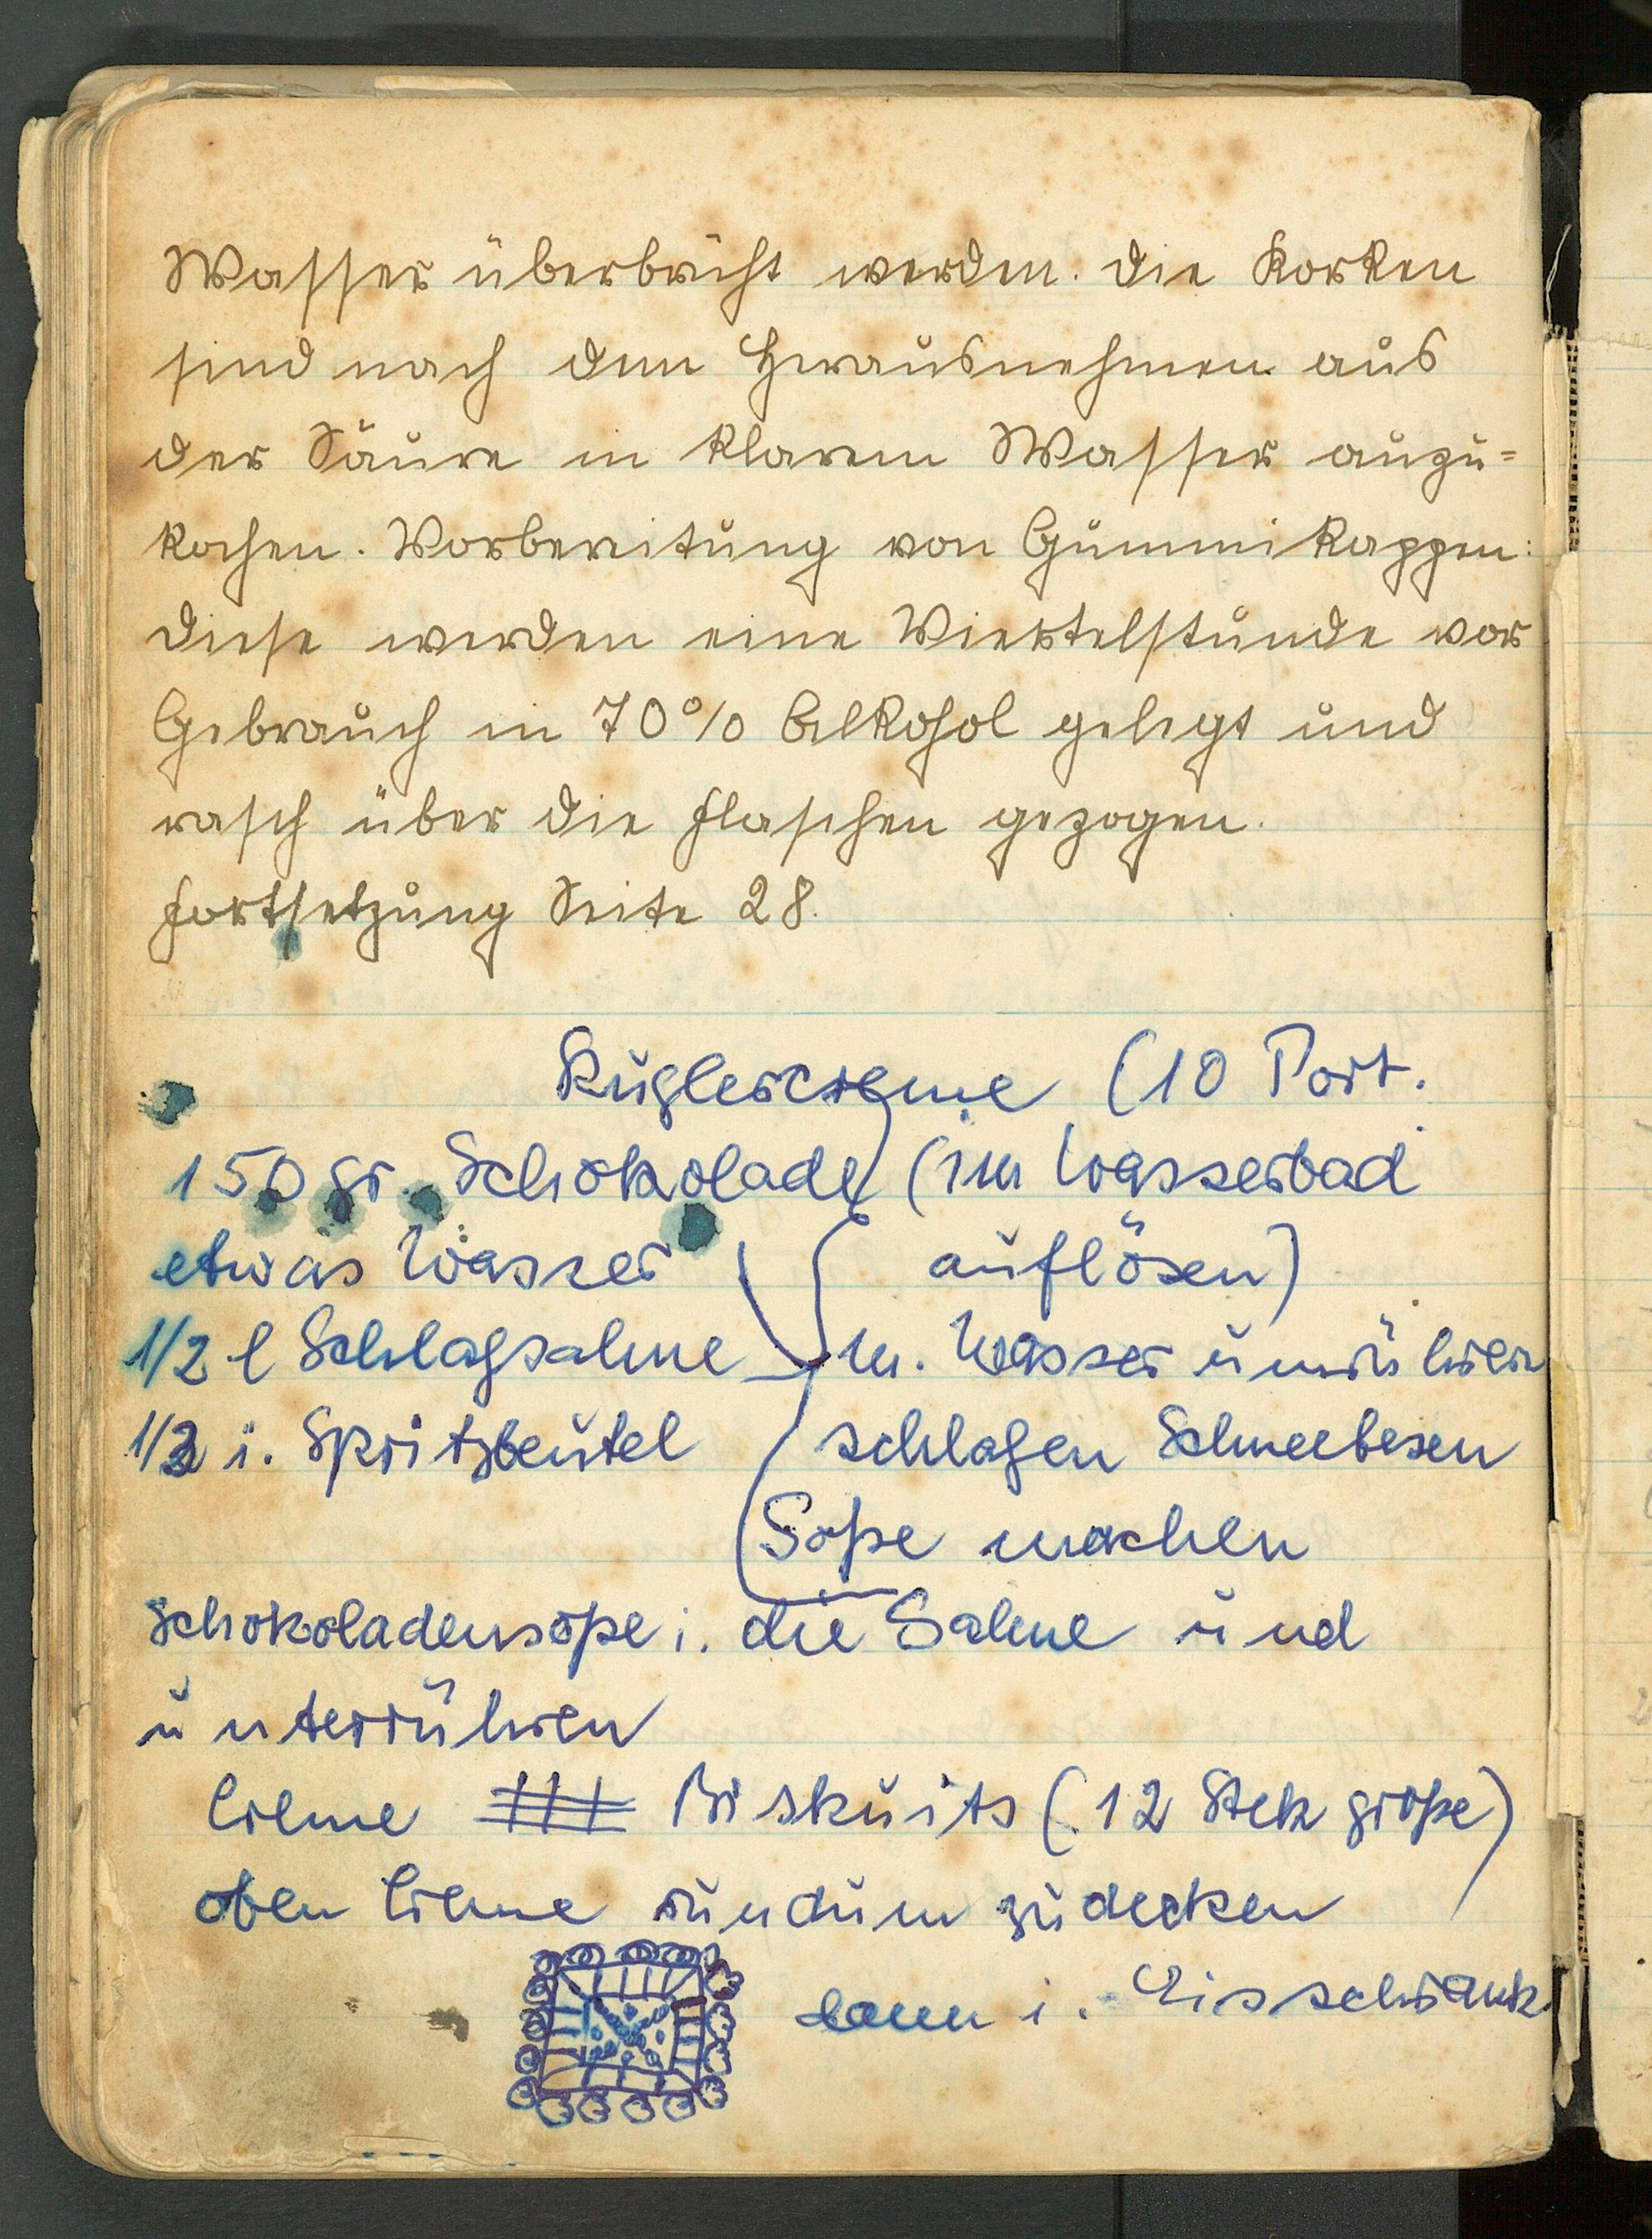 Wasser überbrüht werden. Die Korken
sind nach dem Herausnehmen aus
der Säure in klarem Wasser auszu=
kochen. Vorbereitung von Gummikappen:
diese werden eine Viertelstunde vor
Gebrauch in 70% Alkohol gelegt und
rasch über die Flaschen gezogen.
Fortsetzung Seite 28.
Kuglercreme (10 Port.
150 gr. Schokolade (im Wasserbad
etwas Wasser auflösen)
1/2 l Schlagsahne m. Wasser umrühren
i. Spritzbeutel schlagen Schneebesen
Soße machen
Schokoladensoße i. die Sahne und
unterrühren
Creme Biskuits (12 Stck große)
oben Creme rundum zudecken
dann i. Eisschrank